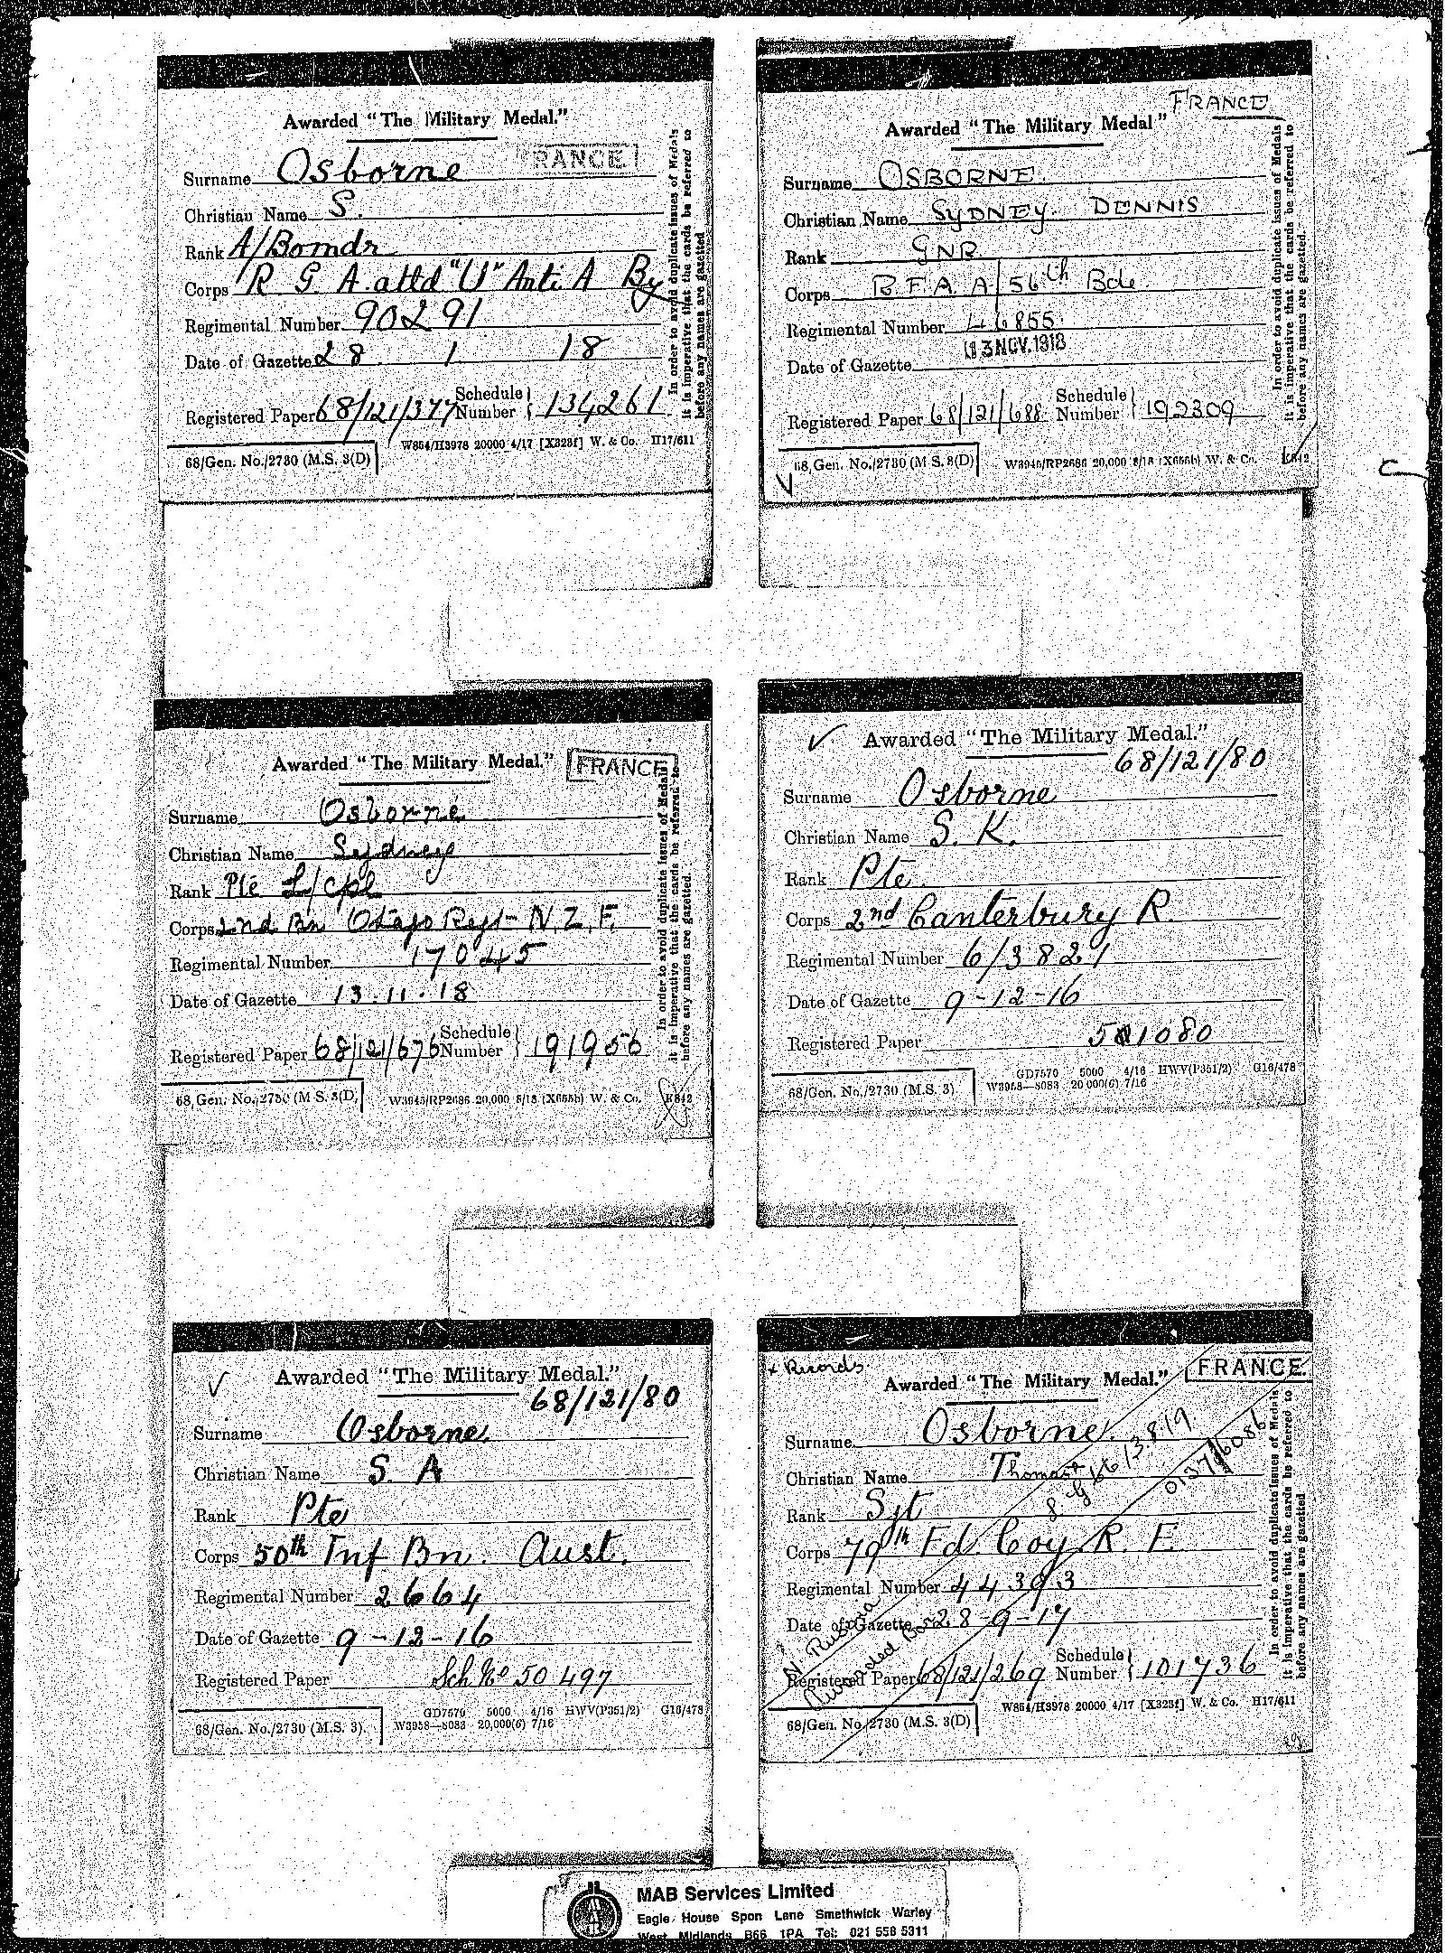 Awarded "The Military Medal."
RANCE
Surname Osborne
Christian Name S.
Rank A/Bomdr
Corps R G A. attd "U" Anti A By
Regimental Number 90291
Date of Gazette 28 1 18
Registered Paper 68/121/377 Schedule Number 134261
68/Gen. No./2730 (M.S. 3(D)
W864/H3978 20000 4/17 [X323f] W. & Co. H17/611
In order to avoid duplicate issues of Medals
it is imperative that the cards be referred to
before any names are gazetted
FRANCE
Awarded "The Military Medal"
Surname OSBORNE.
Christian Name SYDNEY. DENNIS
Rank GNR
Corps R F A A/56th Bde
Regimental Number 46855.
Date of Gazette 13 NOV. 1918
Registered Paper 68/121/688 Schedule Number 192309
68, Gen. No./2730 (M S. 3(D)
W3945/RP2686 20,000 8/18 (X655b) W. & Co. K842
In order to avoid duplicate issues of Medals
it is imperative that the cards be referred to
before any names are gazetted.
C
Awarded "The Military Medal."
FRANCE
Surname Osborne
Christian Name Sydney
Rank Pte L/Cpl
Corps 2nd Bn Otago Regt - N.Z.F.
Regimental Number 17045
Date of Gazette 13.11.18
Registered Paper 68/121/676 Schedule Number 191956
68, Gen. No./2730 (M S. 3(D)
W3945/RP2686 20,000 8/18 (X655b) W. & Co. K842
In order to avoid duplicate issues of Medals
it is imperative that the cards be referred to
before any names are gazetted.
Awarded "The Military Medal."
68/121/80
Surname Osborne
Christian Name S. K.
Rank Pte
Corps 2nd Canterbury R.
Regimental Number 6/3821
Date of Gazette 9-12-16
Registered Paper
68/Gen. No./2730 (M.S. 3)
GD7570 5000 4/16 HWV(P351/2) G16/478
W3958—8083 20 000(6) 7/16
Awarded "The Military Medal."
68/121/80
Surname Osborne.
Christian Name S. A
Rank Pte
Corps 50th Inf Bn. Aust.
Regimental Number 2664
Date of Gazette 9-12-16
Registered Paper Sch No 50497
68/Gen. No./2730 (M.S. 3).
GD7570 5000 4/16 HWV(P351/2) G16/478
W3958—8083 20,000(6) 7/16
+ Records
FRANCE.
Awarded "The Military Medal."
Surname Osborne.
Christian Name Thomas
Rank Sjt
Corps 79th Fd Coy R. E.
Regimental Number 44393
Date of Gazette 28-9-17
Registered Paper 68/121/269 Schedule Number 101736
N. Russia
Awarded Bar
68/Gen. No./2730 (M.S. 3(D)
W864/H3978 20000 4/17 [X323f] W. & Co. H17/611
In order to avoid duplicate issues of Medals
it is imperative that the cards be referred to
before any names are gazetted
MAB Services Limited
Eagle House Spon Lane Smethwick Warley
West Midlands B66 1PA Tel: 021 558 5311